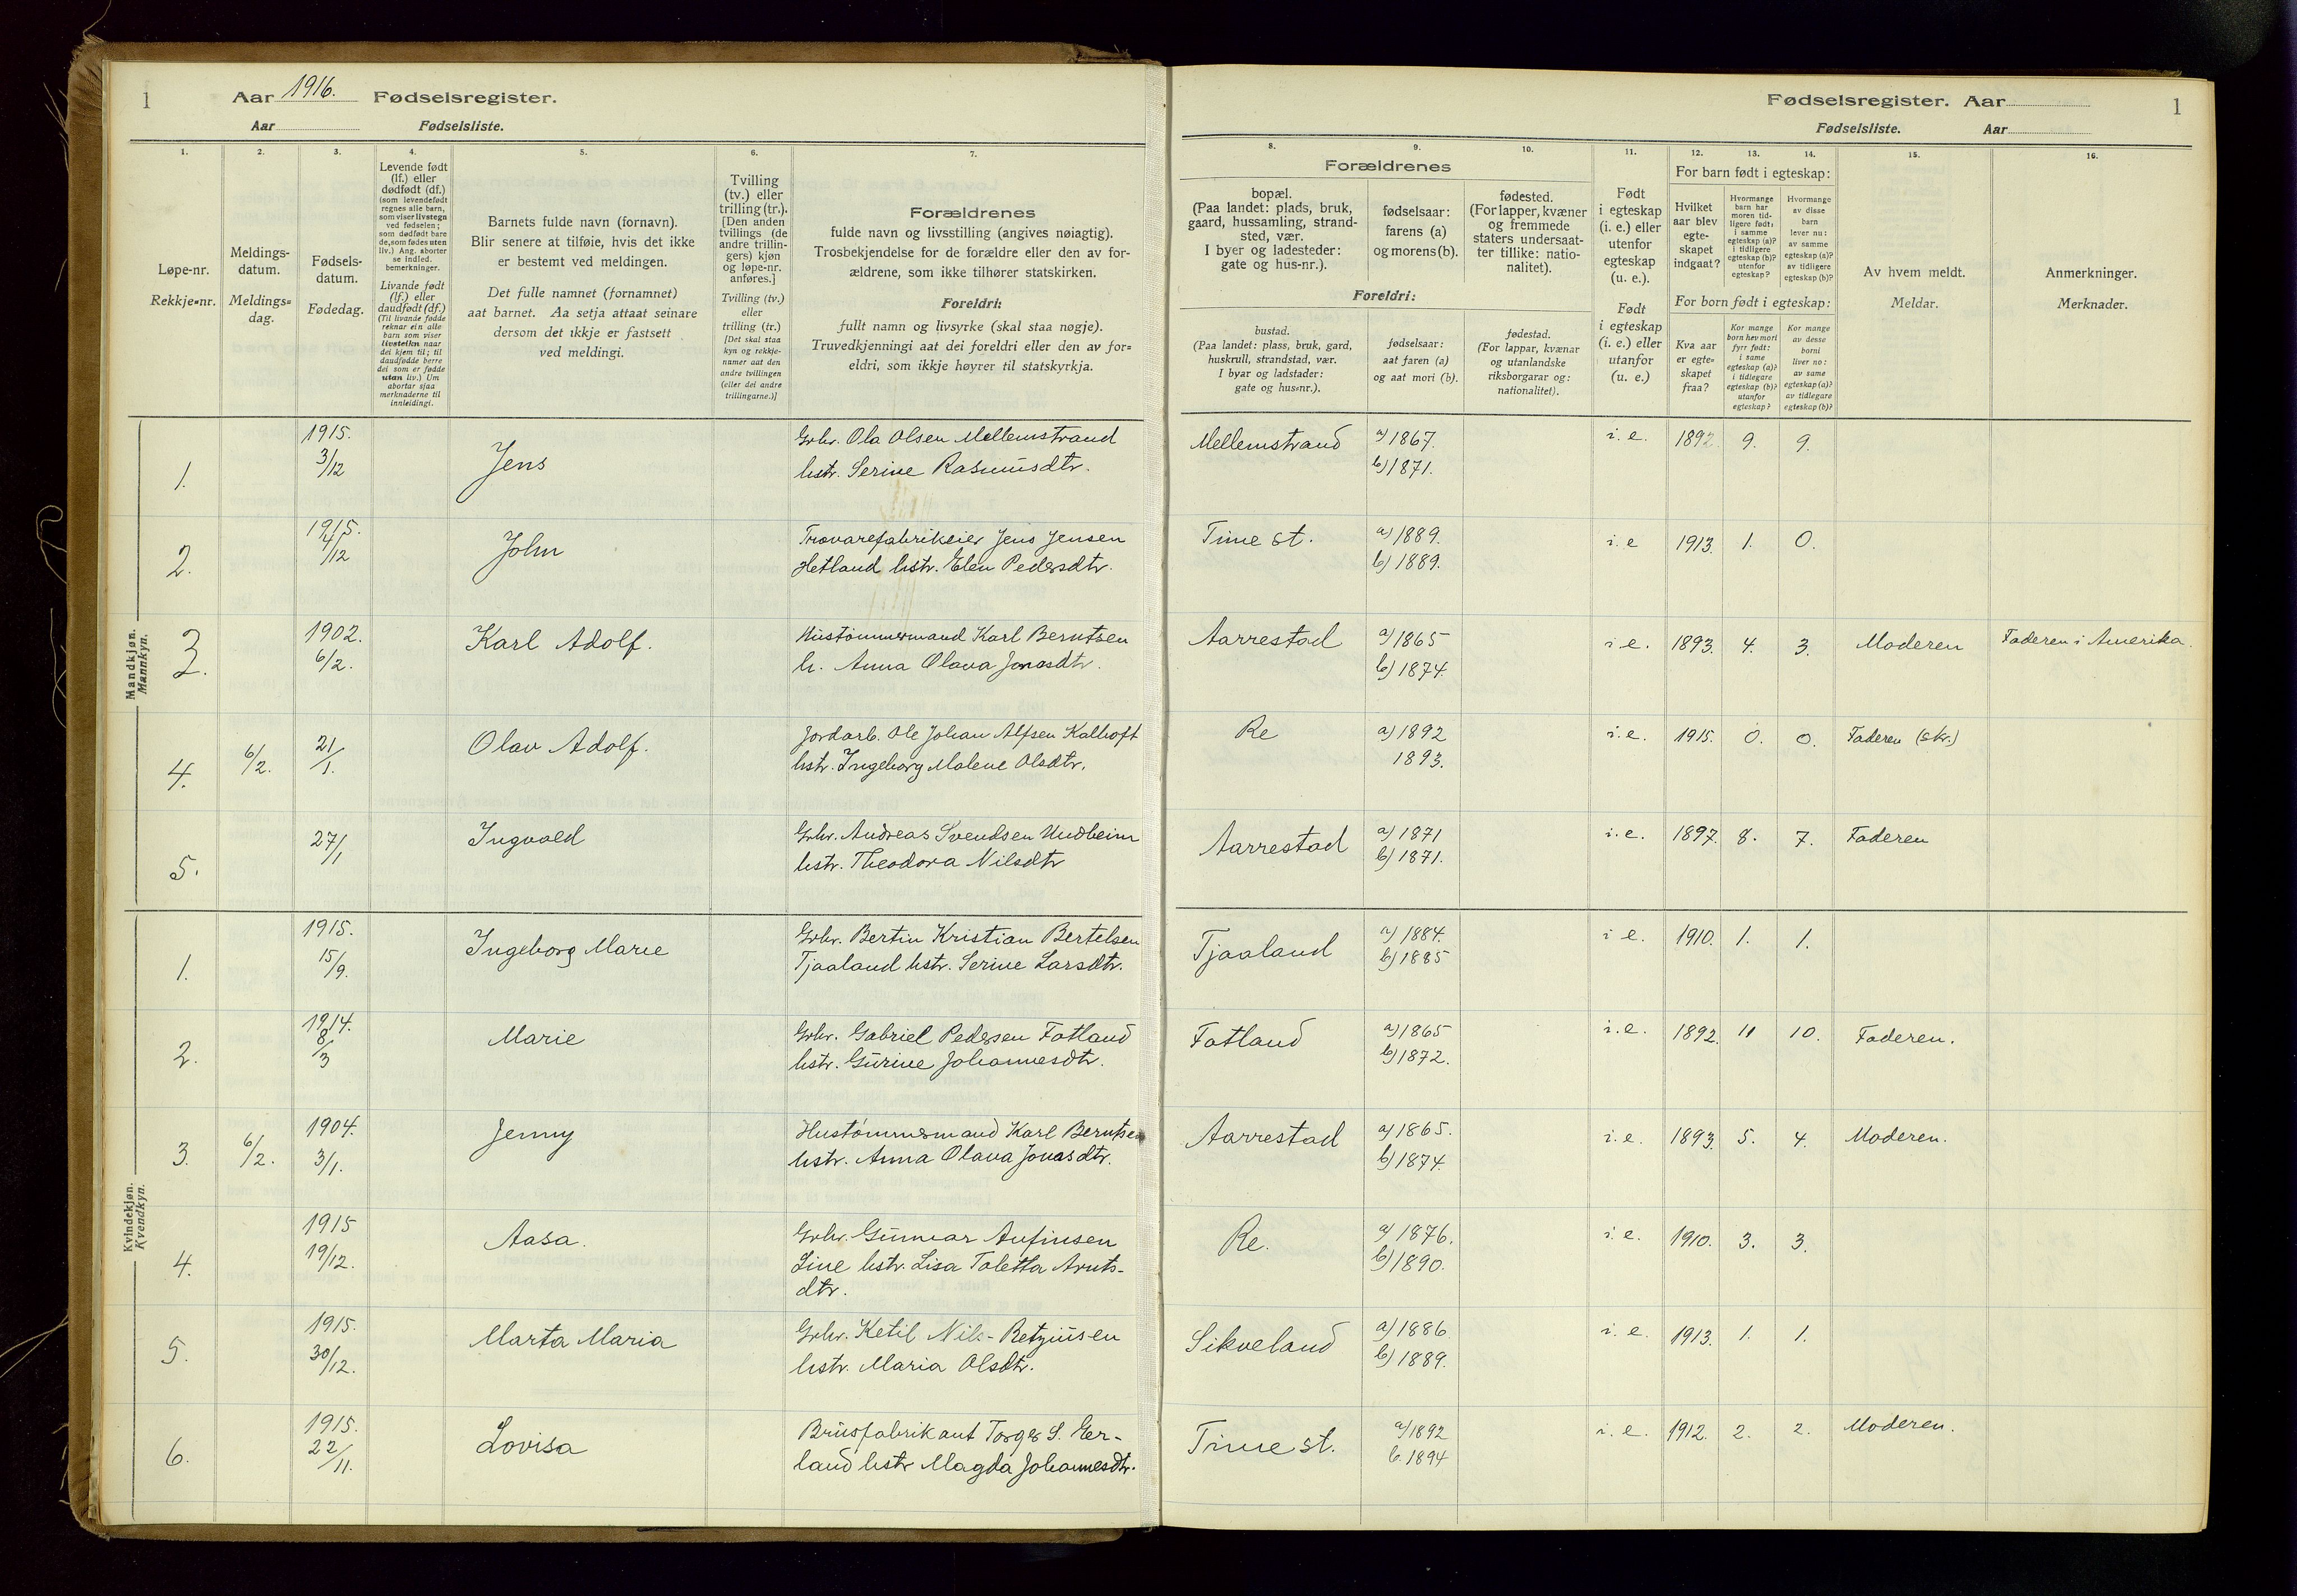 1
Aar 1916. Fødselsregister.
Aar Fødselsliste.
1. 2. 3. 4. 5. 6. 7.
Løpe-nr.
Rekkje-nr.
Meldings-
datum.
Meldings-
dag.
Fødsels-
datum.
Fødedag.
Levende født
(lf.) eller
dødfødt (df.)
(som levendefødt
regnes alle barn,
som viser livstegn
ved fødselen;
som dødfødt bare
de, som fødes uten
liv.) Ang. aborter
se indled.
bemerkninger.
Livande født
(lf.) eller
daudfødt (df.)
(Til livande fødde
reknar ein alle
barn som viser
livsteikn naar
dei kjem til; til
daudfødde berre
dei som er fødde
utan liv.) Um
abortar sjaa
merknaderne til
innleidingi.
Barnets fulde navn (fornavn).
Blir senere at tilføie, hvis det ikke
er bestemt ved meldingen.
Det fulle namnet (fornamnet)
aat barnet. Aa setja attaat seinare
dersom det ikkje er fastsett
ved meldingi.
Tvilling
(tv.) eller
trilling (tr.).
[Den anden
tvillings (de
andre trillin-
gers) kjøn
og løpe-nr.
anføres.]
Tvilling (tv.)
eller
trilling (tr.)
[Det skal staa
kyn og rekkje-
namer aat den
andre tvillingen
(eller dei andre
trillingarne.)]
Forældrenes
fulde navn og livsstilling (angives nøiagtig).
Trosbekjendelse for de forældre eller den av for-
ældrene, som ikke tilhører statskirken.
Foreldri:
fullt namn og livsyrke (skal staa nøgje).
Truvedkjenningi aat dei foreldri eller den av for-
eldri, som ikkje høyrer til statskyrkja.
Mandkjøn.
Mannkyn.
1. 1915. 3/12 Jens Grbr. Ola Olsen Mellemstrand
hstr. Serine Rasmusdtr.
2. 1915. 4/12 John Trævarefabrikeier Jens Jensen
Hetland hstr. Elen Pedersdtr.
3. 1902. 6/2. Karl Adolf. Hustømmermand Karl Berntsen
h. Anna Olava Jonasdtr.
4. 6/2. 21/1. Olav Adolf. Jordarb. Ole Johan Alfsen Kalhoft
hstr. Ingeborg Malene Olsdtr.
5. 27/1 Ingvald Grbr. Andreas Svendsen Undheim
hstr. Theodora Nilsdtr
Kvindekjøn.
Kvendkyn.
1. 1915. 15/9. Ingeborg Marie Grbr. Bertin Kristian Bertelsen
Tjaaland hstr. Serine Larsdtr.
2. 1914. 8/3 Marie Grbr. Gabriel Pedersen Fotland
hstr. Gurine Johannesdtr.
3. 6/2. 1904. 3/1. Jenny Hustømmermand Karl Berntsen
hstr. Anna Olava Jonasdtr.
4. 1915 19/12. Aasa. Grbr. Gunnar Anfinsen
Line hstr. Lisa Toletta Arnts-
dtr.
5. 1915. 30/12. Marta Maria Grbr. Ketil Nils-Retzius-en
hstr. Maria Olsdtr.
6. 1915. 22/11. Lovisa Brusfabrikant Torger S. Her-
land hstr Magda Johannesdtr.
Fødselsregister. Aar 1
Fødselsliste. Aar
8. 9. 10. 11. 12. 13. 14. 15. 16.
Forældrenes
bopæl.
(Paa landet: plads, bruk,
gaard, hussamling, strand-
sted, vær.
I byer og ladesteder:
gate og hus-nr.).
fødselsaar:
farens (a)
og morens (b).
fødested.
(For lapper, kvæner
og fremmede
staters undersaat-
ter tillike: natio-
nalitet).
Foreldri:
bustad.
(Paa landet: plass, bruk, gard,
huskrull, strandstad, vær.
I byar og ladstader:
gate og hus-nr.).
fødselsaar:
aat faren (a)
og aat mori (b).
fødestad.
(For lappar, kvænar
og utanlandske
riksborgarar og:
nationalitet).
Født
i egteskap
(i. e.) eller
utenfor
egteskap
(u. e.).
Født
i egteskap
(i. e.) eller
utanfor
(u. e.)
For barn født i egteskap:
Hvilket
aar blev
egte-
skapet
indgaat?
Hvormange
barn har
moren tid-
ligere født:
i samme
egteskap (a)?
i tidligere
egteskap (b)?
utenfor
egteskap?
Hvormange
av disse
barn
lever nu:
av samme
egteskap (a)?
av tidligere
egteskap (b)?
For born født i egteskap:
Kva aar
er egte-
skapet
fraa?
Kor mange
born hev mori
fyrr født:
i same
egteskap (a)?
i tidlegare
egteskap (b)?
utanfor
egteskap?
Kor mange
av desse
borni
liver no:
av same
egteskap (a)?
av tidlegare
egteskap (b)?
Av hvem meldt.
Meldar.
Anmerkninger.
Merknader.
Mellemstrand a) 1867. b) 1871. i. e. 1892. 9. 9.
Time st. a) 1889. b) 1889. i. e 1913. 1. 0.
Aarrestad a) 1865 b) 1874. i. e. 1893. 4. 3. Moderen Faderen i Amerika.
Re a) 1892 1893. i. e. 1915. 0. 0. Faderen (skr.)
Aarrestad a) 1871 b) 1871. i. e. 1897. 8. 7. Faderen
Tjaaland a) 1884. b) 1885 i e. 1910. 1. 1.
Fotland a) 1865 b) 1872. i. e. 1892. 11 10. Faderen.
Aarrestad a) 1865. b) 1874. i. e. 1893. 5. 4. Moderen.
Re. a) 1876. b) 1890. i. e. 1910. 3. 3.
Sikveland a) 1886. b) 1889. i. e. 1913. 1. 1.
Time st. a) 1892 b. 1894 i. e. 1912. 2. 2. Moderen.